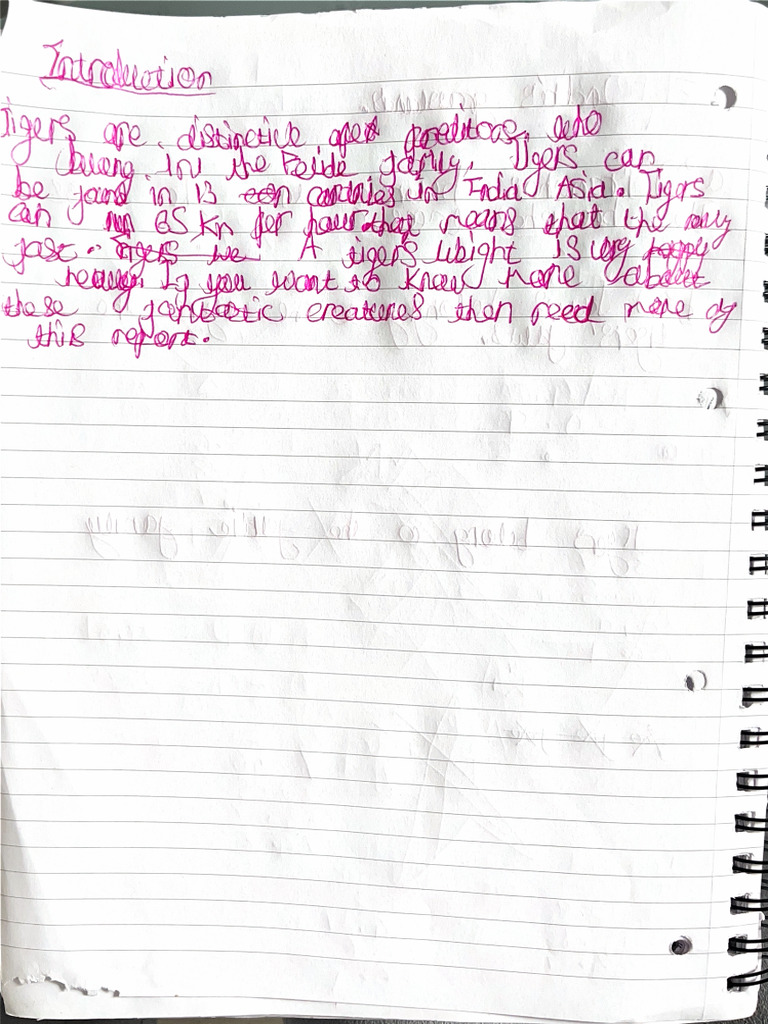 Introduction
Tigers are distinctive apex preditoas, who
belong in the Feilde family. Tigers can
be found in 13 countries in India Asia. Tigers
can run 65 Km per hour that means that the
fast. Tigers A tigers wbight is very
heavy If you want to know more about
these fantastic creatures then reed more of
this report.